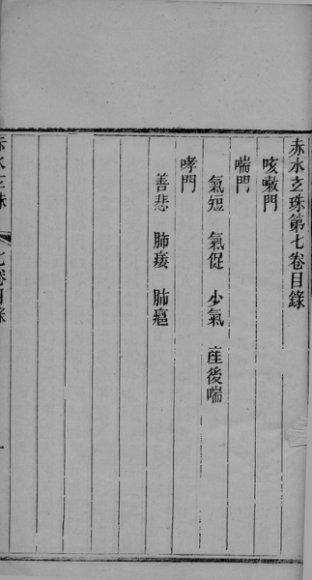 赤水玄珠第七卷目錄
咳嗽門
喘門
氣短 氣促 少氣 產後喘
哮門
善悲 肺痿 肺癰
赤水玄珠 七卷目錄 一